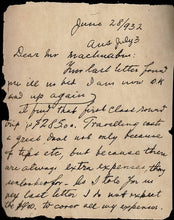 June 28/932
Ans July 3
Dear Mr
Your last letter found
me ill in bed I am now OK
and up again
I find that first class round
trip $285.00. Travelling costs
a great deal not only because
of tips etc, but because there
are always extra expenses, they
As I told you in
my last letter I do not expect
the $400. to cover all my expenses.